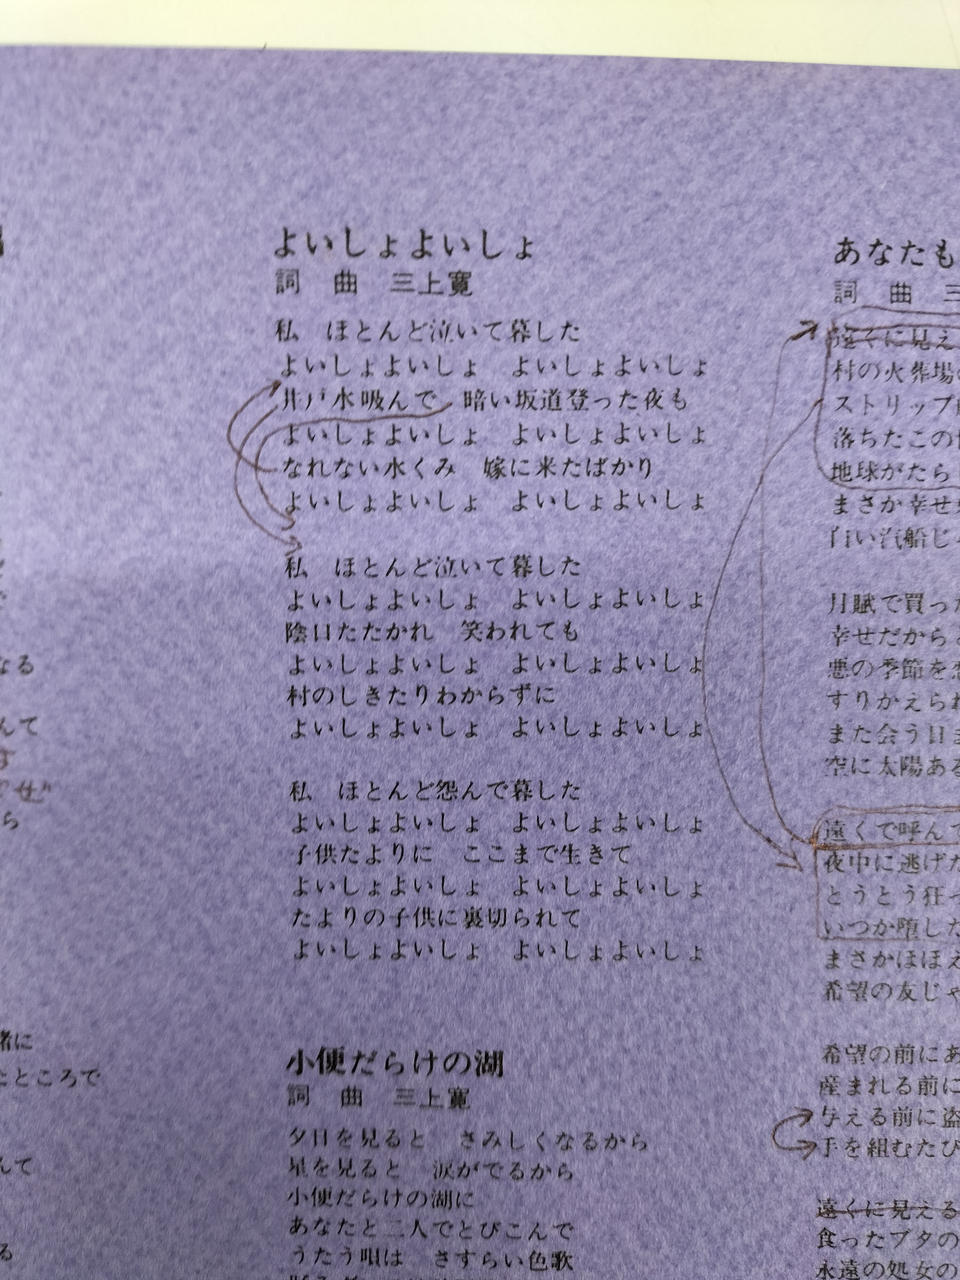 よいしょよいしょ
詞　曲　三上寛
私　ほとんど泣いて暮した
よいしょよいしょ　よいしょよいしょ
井戸水吸んで　暗い坂道登った夜も
よいしょよいしょ　よいしょよいしょ
なれない水くみ　嫁に来たばかり
よいしょよいしょ　よいしょよいしょ
私　ほとんど泣いて暮した
よいしょよいしょ　よいしょよいしょ
陰口たたかれ　笑われても
よいしょよいしょ　よいしょよいしょ
村のしきたりわからずに
よいしょよいしょ　よいしょよいしょ
私　ほとんど怨んで暮した
よいしょよいしょ　よいしょよいしょ
子供たよりに　ここまで生きて
よいしょよいしょ　よいしょよいしょ
たよりの子供に裏切られて
よいしょよいしょ　よいしょよいしょ
小便だらけの湖
詞　曲　三上寛
夕日を見ると　さみしくなるから
星を見ると　涙がでるから
小便だらけの湖に
あなたと二人でとびこんで
うたう唄は　さすらい色歌
あなたも
詞　曲　三
遠くに見え
村の火葬場
ストリップ
落ちたこの
地球がたら
まさか幸せ
白い汽船じ
月賦で買っ
幸せだから
悪の季節を
すりかえられ
また会う日
空に太陽ある
遠くで呼んで
夜中に逃げた
とうとう狂っ
いつか堕した
まさかほほえ
希望の友じゃ
希望の前にあ
産まれる前に
与える前に盗
手を組むたび
遠くに見える
食ったブタの
永遠の処女の
なる
んて
ら
緒に
たところで
んて
る